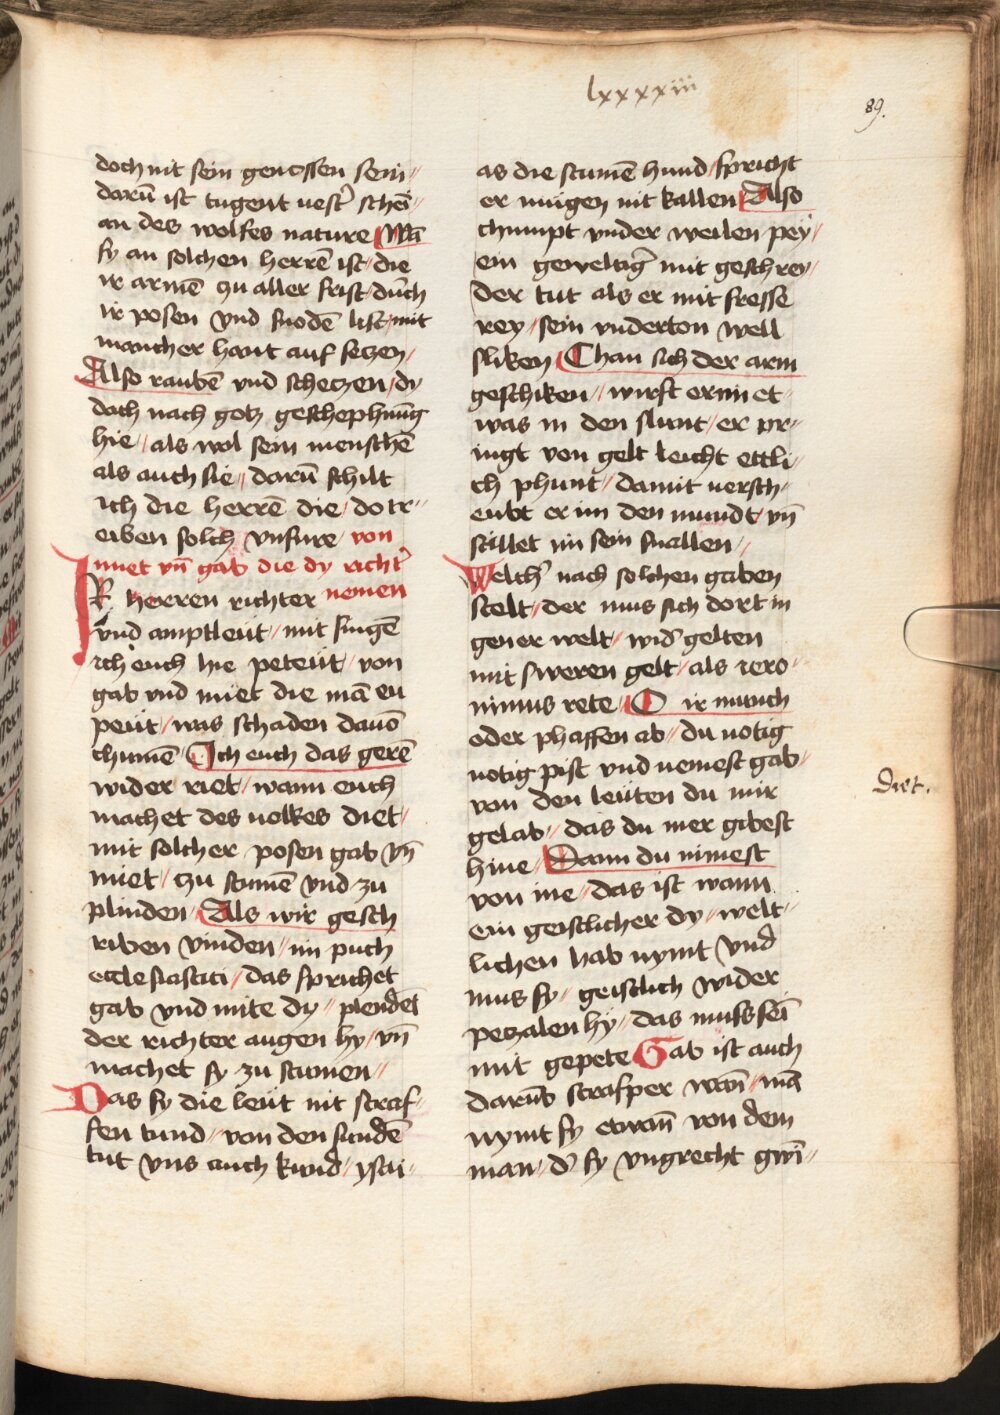 lxxxxiii
89.
doch nit sein genossen sein //
darū ist tugent uest' schei //
an des wolfes nature / Wā
sy an solchen herrē ist / die
ir armē zu aller frist / durch
ir posen vnd snodē list / mit
mancher hant auf setzen /
Also raubē vnd schetzen / dy
doch nach gotz geschephnūg
hie / als wol sein menschē
als auch sie // darū schilt
ich die herrē die / do tr//
eiben solch vnfure / von
muet vn̄ gab die dy richt'
nemen
IR herren richter
vnd amptleut / mit singē
ich euch hie peteut / von
gab vnd miet die mā eu
peut / was schaden dauō
chumē / Ich euch das gerē
wider riet / wann euch
machet des uolkes diet /
mit solcher posen gab vn̄
miet / zu stumē vnd zu
plinden / Als wir gesch
riben vinden // im puch
ecclesiastici / das sprichet
gab vnd mite dy // plendēt
der richter augen hy / vn̄
machet sy zu stumen //
Das sy die leut nit straf//
fen tund // von den sundē
tut vns auch kund / ysai//
as die stumē hund / spricht
er mugen nit kallen / Also
chumpt vnder weilen pey /
ein geweltig' mit geschrey //
der tut als er mit fresse
rey / sein vnderton well
sliken / Chan sich der arm
geschiken // wirft er im et
was in den slunt / er pr//
ingt von gelt leicht ettli/
ch phunt / damit versch//
eubt er im den mundt / vn̄
stillet im sein snallen //
Welch' nach solchen gaben
stelt / der mus sich dort in
gener welt / wid' gelten
mit sweren gelt / als iero/
nimus rete / O ir munch
oder phaffen ab / du notig
notig pist vnd nemest gab /
von den leuten du mir
gelab // das du mer gibest
hine / Dann du nimest
von ine / das ist wann
ein geistlicher dy // welt//
lichen hab nymt vnd
mus sy // geistlich wider
petzalen hy / das muss sei
mit gepete Gab ist auch
darūb strafper wan̄ / mā
nymt sy etwan̄ von dem
man / d' sy vngrecht gwī//
Diet.